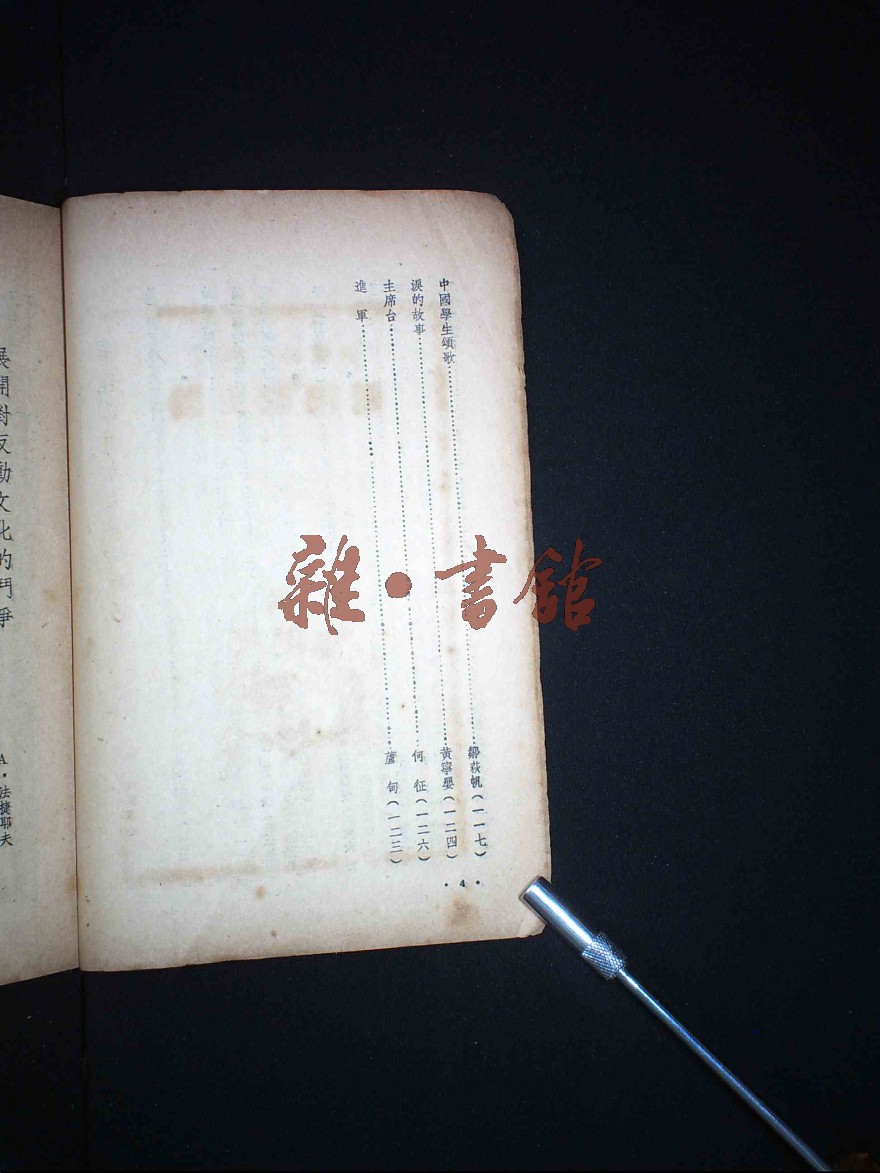 中國學生頌歌……鄒荻帆(一一七)
淚的故事……黃寧嬰(一二四)
主席台……何 征(一二六)
進 軍……蘆 甸(一二三)
·4·
展開對反動文化的鬥爭
A·法捷耶夫
雜·書館